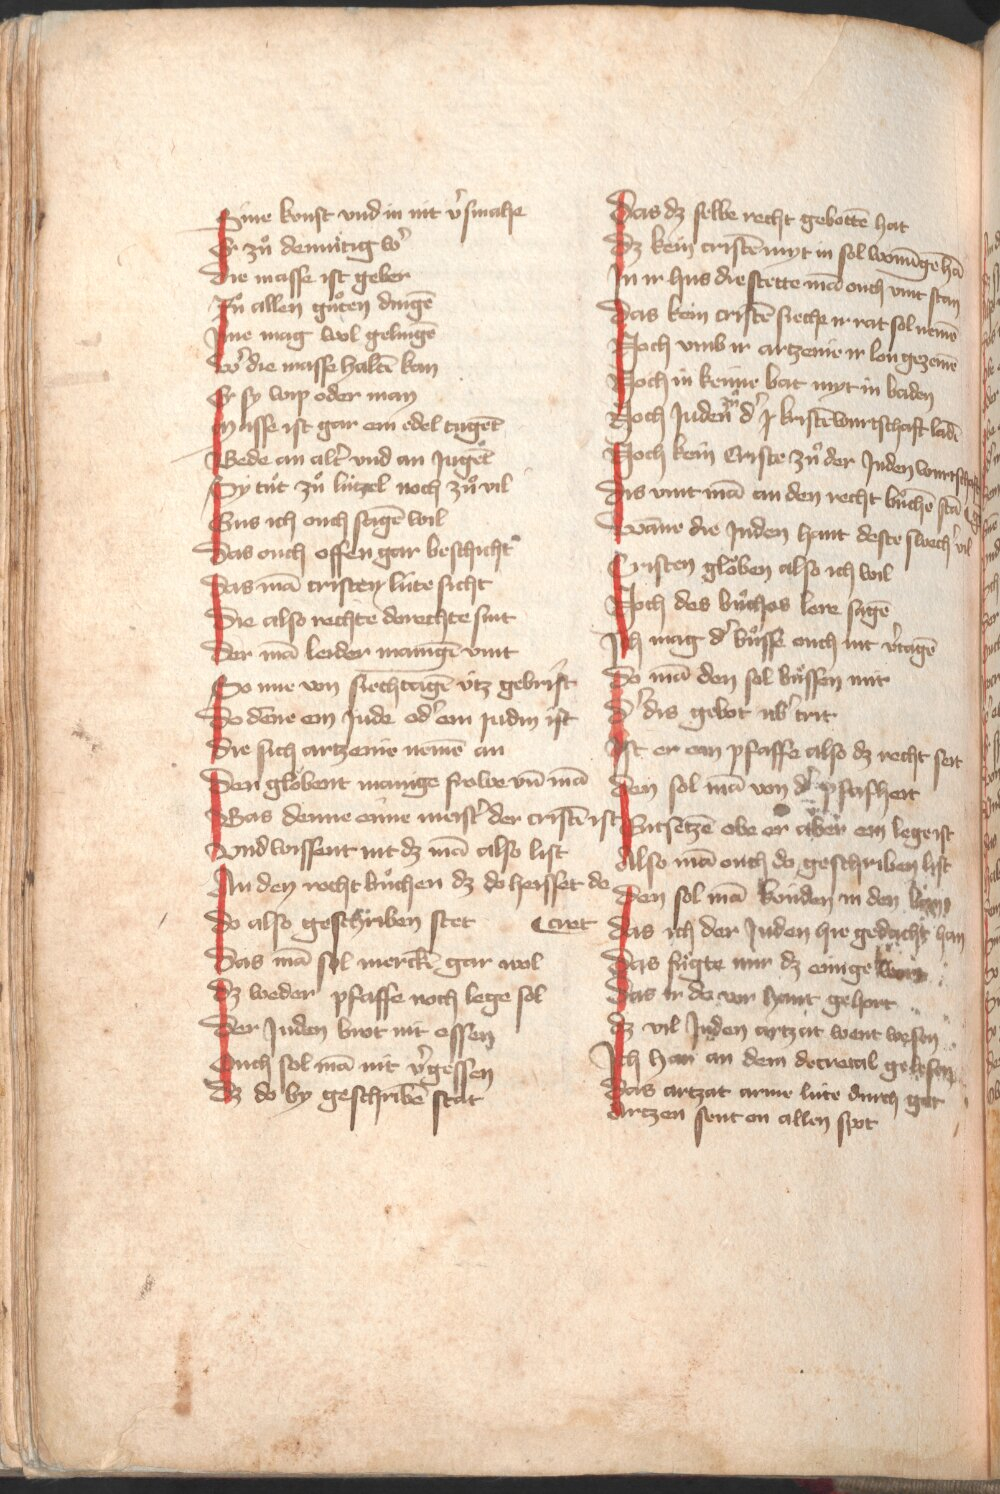 Sine konst vnd in nit v̓smahe
Er zuͦ demuͤtig w̓
Die masse ist geber
Zuͦ allen guͦten dingē
Ime mag wol gelingē
W̓ die masse haltē kan
Er sy wip oder man
Masse ist gar ein edel tugēt
Bede an alt̓ vnd an jugēt
Sy tuͦt zuͦ luͤtzel noch zuͦ vil
Eins ich ouch sagē wil
Das ouch offen gar beschicht
Das mā cristen luͤte sicht
Die also rechte dorechte sint
Der mā leider manigē vint
So ime von siechtagē vtz gebrist
Do dēne ein Jude od̓ ein judin ist
Die sich artzenie nemē an
Den gloͤbent manige frowe vn̄ mā
Bas denne eime meist̓ der cristē ist
Vnd wissent nit dz mā also list
An den recht buͤchen dz do heisset de
do also geschriben stet cret
Das mā sol mercke gar wol
Dz weder pfaffe noch leye sol
Der Juden brot nit essen
Ouch sol mā nit v̓gessen
Dz do by geschribē stat
Das dz selbe recht gebottē hat
Dz kein cristē myt in sol wonūge hā
In ir hus die stette mā ouch vint stan
Das kein cristē sieche ir rat sol nemē
Noch vmb ir artzenie ir lon gezemē
Noch in keime bat myt in baden
Noch Juden zuͦ d̓ kristē wurtschaft ladē
Noch kein Criste zuͦ der Juden wurtschaft
Dis vint mā an den recht buͤchē stā
Wāne die Juden hant deste swech̓ vil
Cristen gloͤben also ich wil
Noch des buͦches lere sagē
Ich mag d̓ buͦsse ouch nit v̓tagē
So mā den sol buͤssen mit
D̓ dis gebot vb̓ trit
Ist er ein pfaffe also dz recht seit
Den sol mā von d̓ pfafheit
Entsetzē obe er aber ein leye ist
Also mā ouch do geschriben list
Den sol mā kuͤnden in den
Das ich der Juden hie gedacht han
Das fuͤgte mir dz einige
Das ir do vor hant gehort
Dz vil Juden artzat went wesen
Ich han an dem decretal gelesen
Das artzat arme luͤte durch got
Artzen sent on allen spot